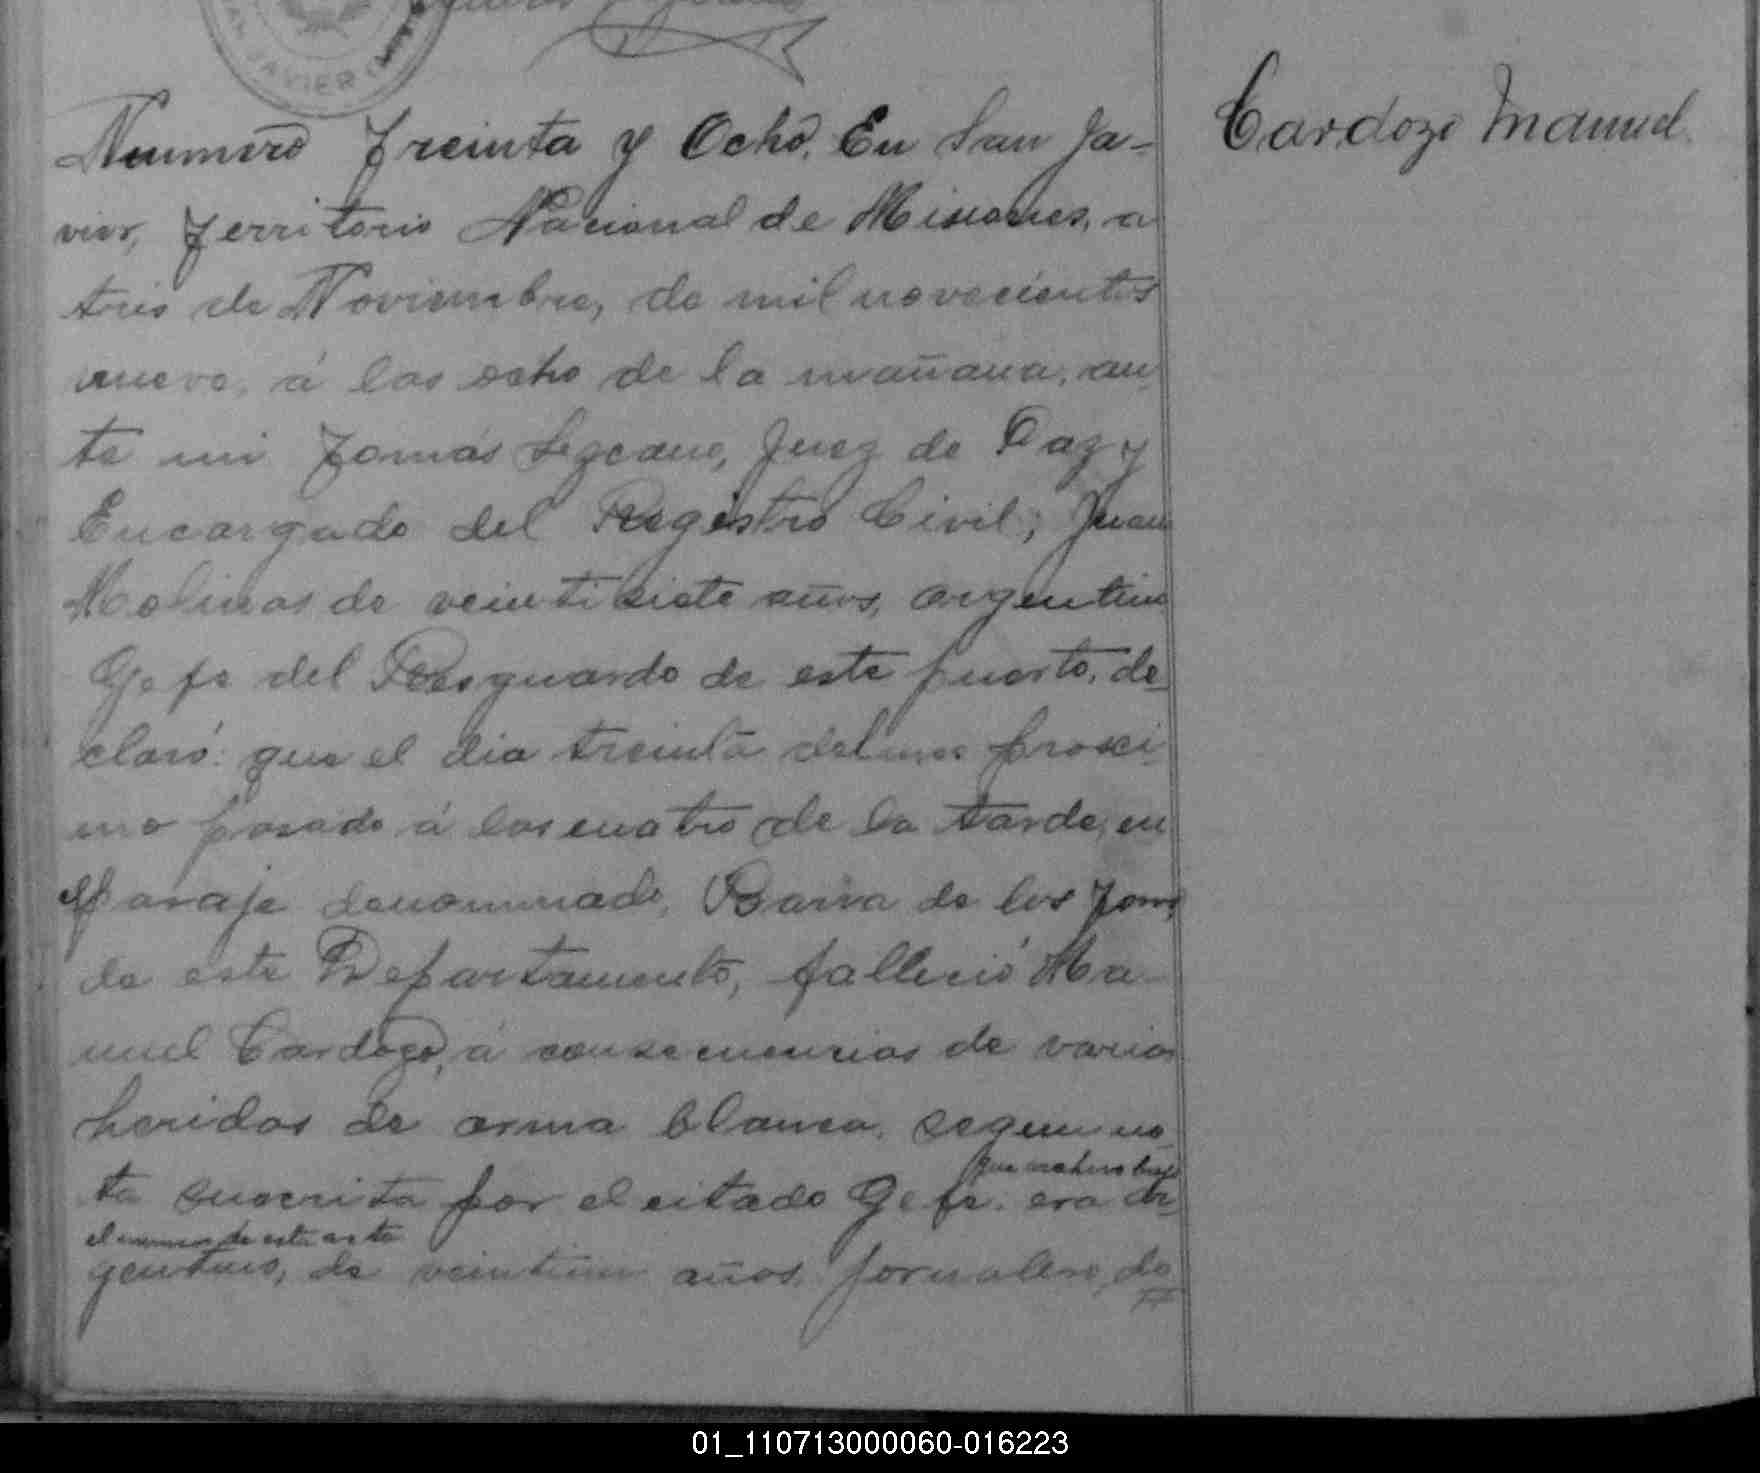 SAN JAVIER
Cardozo Manuel
Numero Treinta y Ocho. En San Ja-
vier, Territorio Nacional de Misiones, a
tres de Noviembre, de mil novecientos
nueve, á las ocho de la mañana, an
te mi Tomás Lezcano, Juez de Paz y
Encargado del Registro Civil; Juan
Molinas de veintisiete años, argentino
Gefe del Resguardo de este puerto, de-
claró: que el dia treinta del mes proxi-
mo pasado á las cuatro de la tarde, en
el paraje denominado, Barra de los
de este Departamento, falleció Ma-
nuel Cardozo, á consecuencias de varias
heridas de arma blanca, segun no-
que archivo bajo
ta suscrita por el citado Gefe. era ar-
el numero de esta acta
gentino, de veintiun años, jornalero, do
01_110713000060-016223